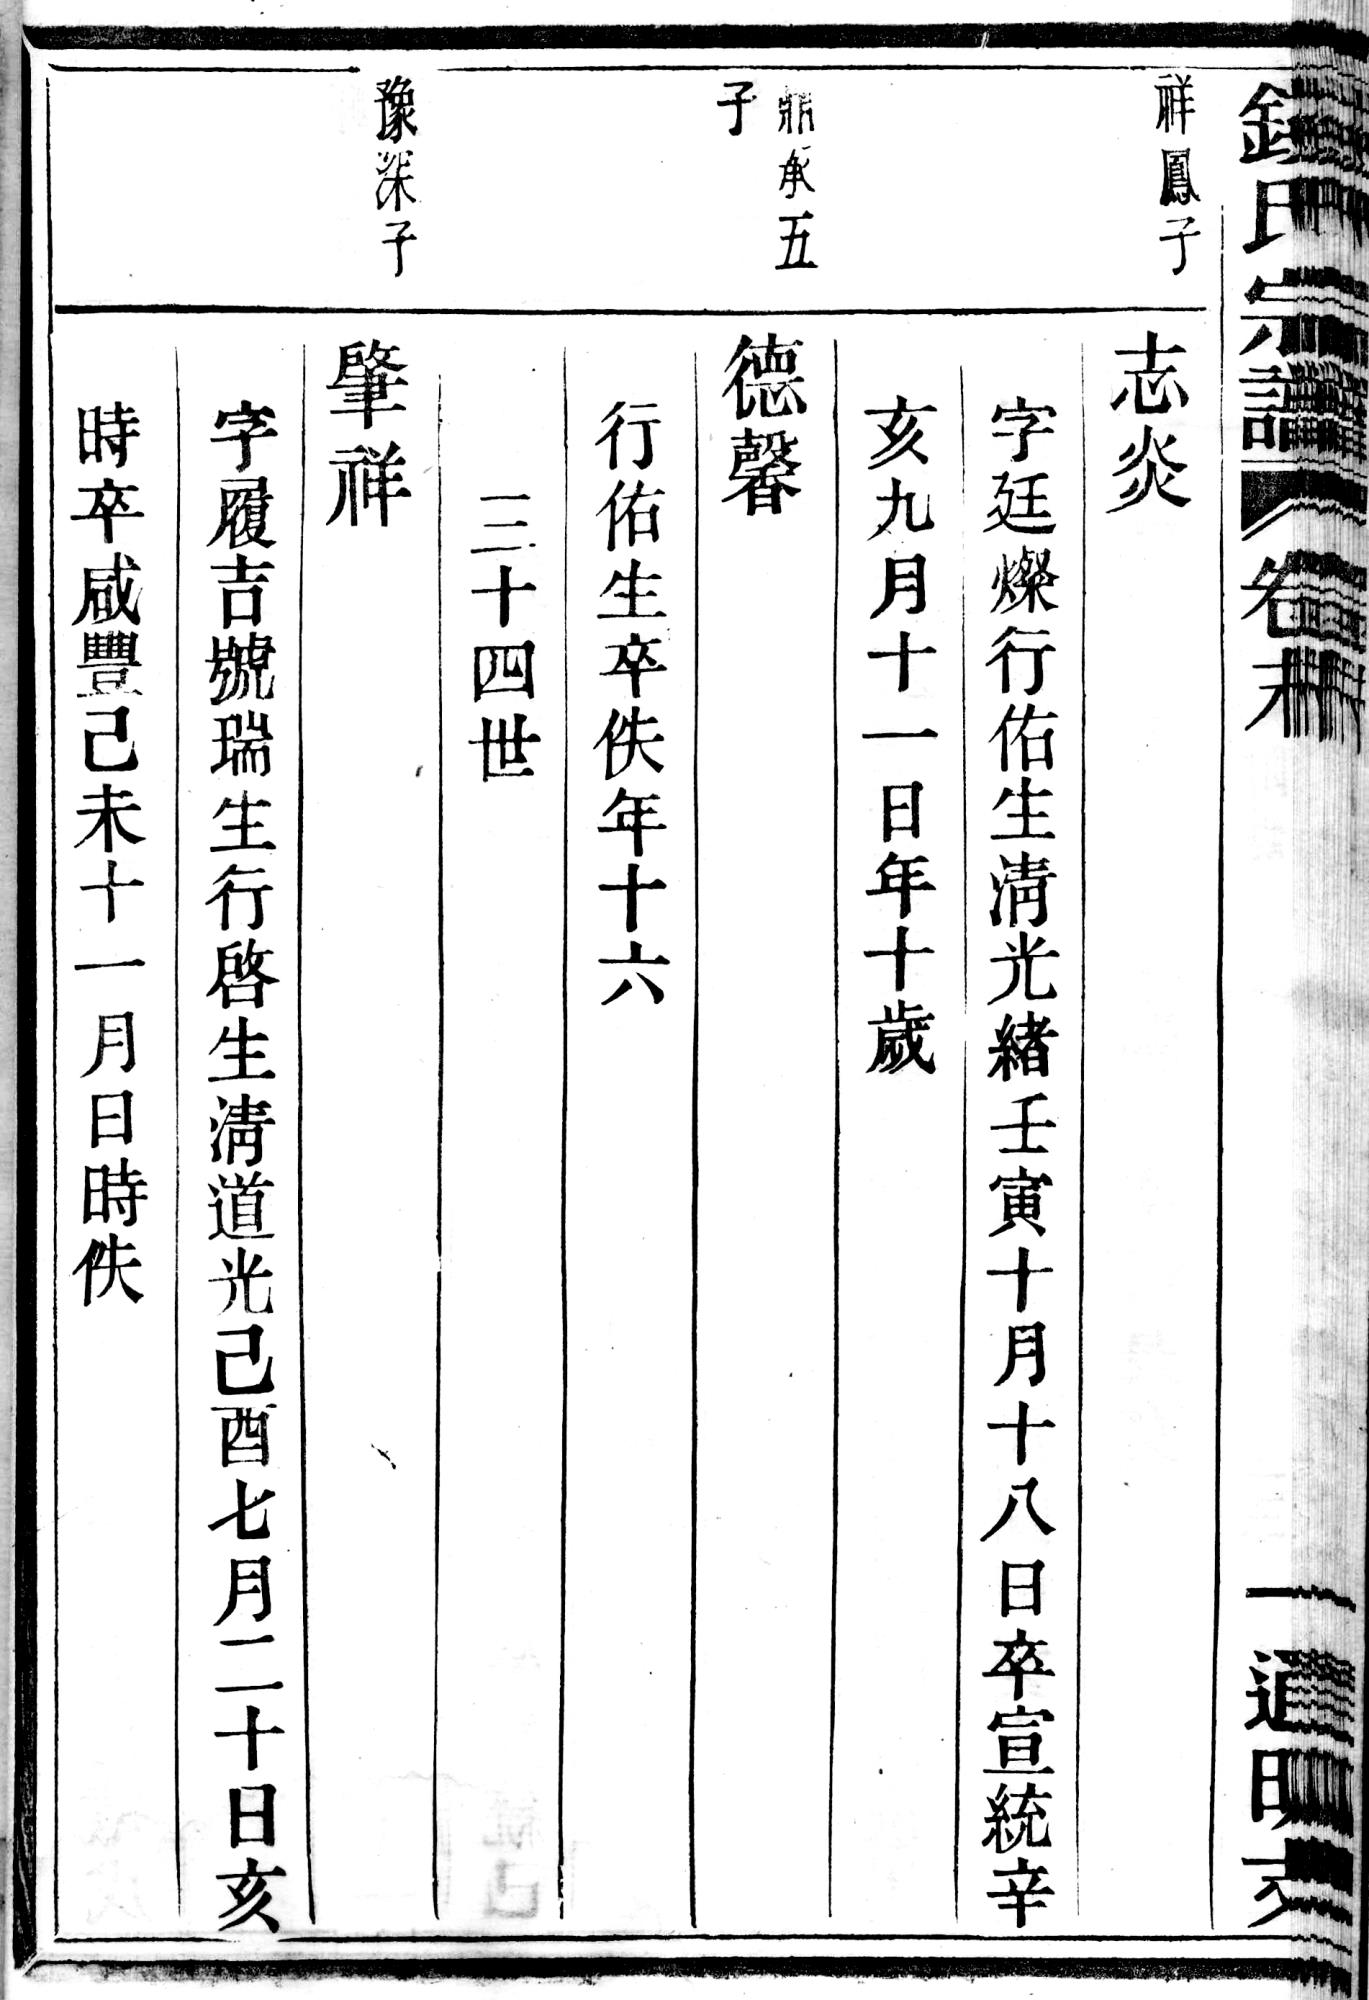 氏宗譜 卷末 一 通明
祥鳳子
志炎
字廷燦行佑生清光緒壬寅十月十八日卒宣統辛
亥九月十一日年十歲
鼎承五
子
德馨
行佑生卒佚年十六
三十四世
豫深子
肇祥
字履吉號瑞生行啓生清道光己酉七月二十日亥
時卒咸豐己未十一月日時佚